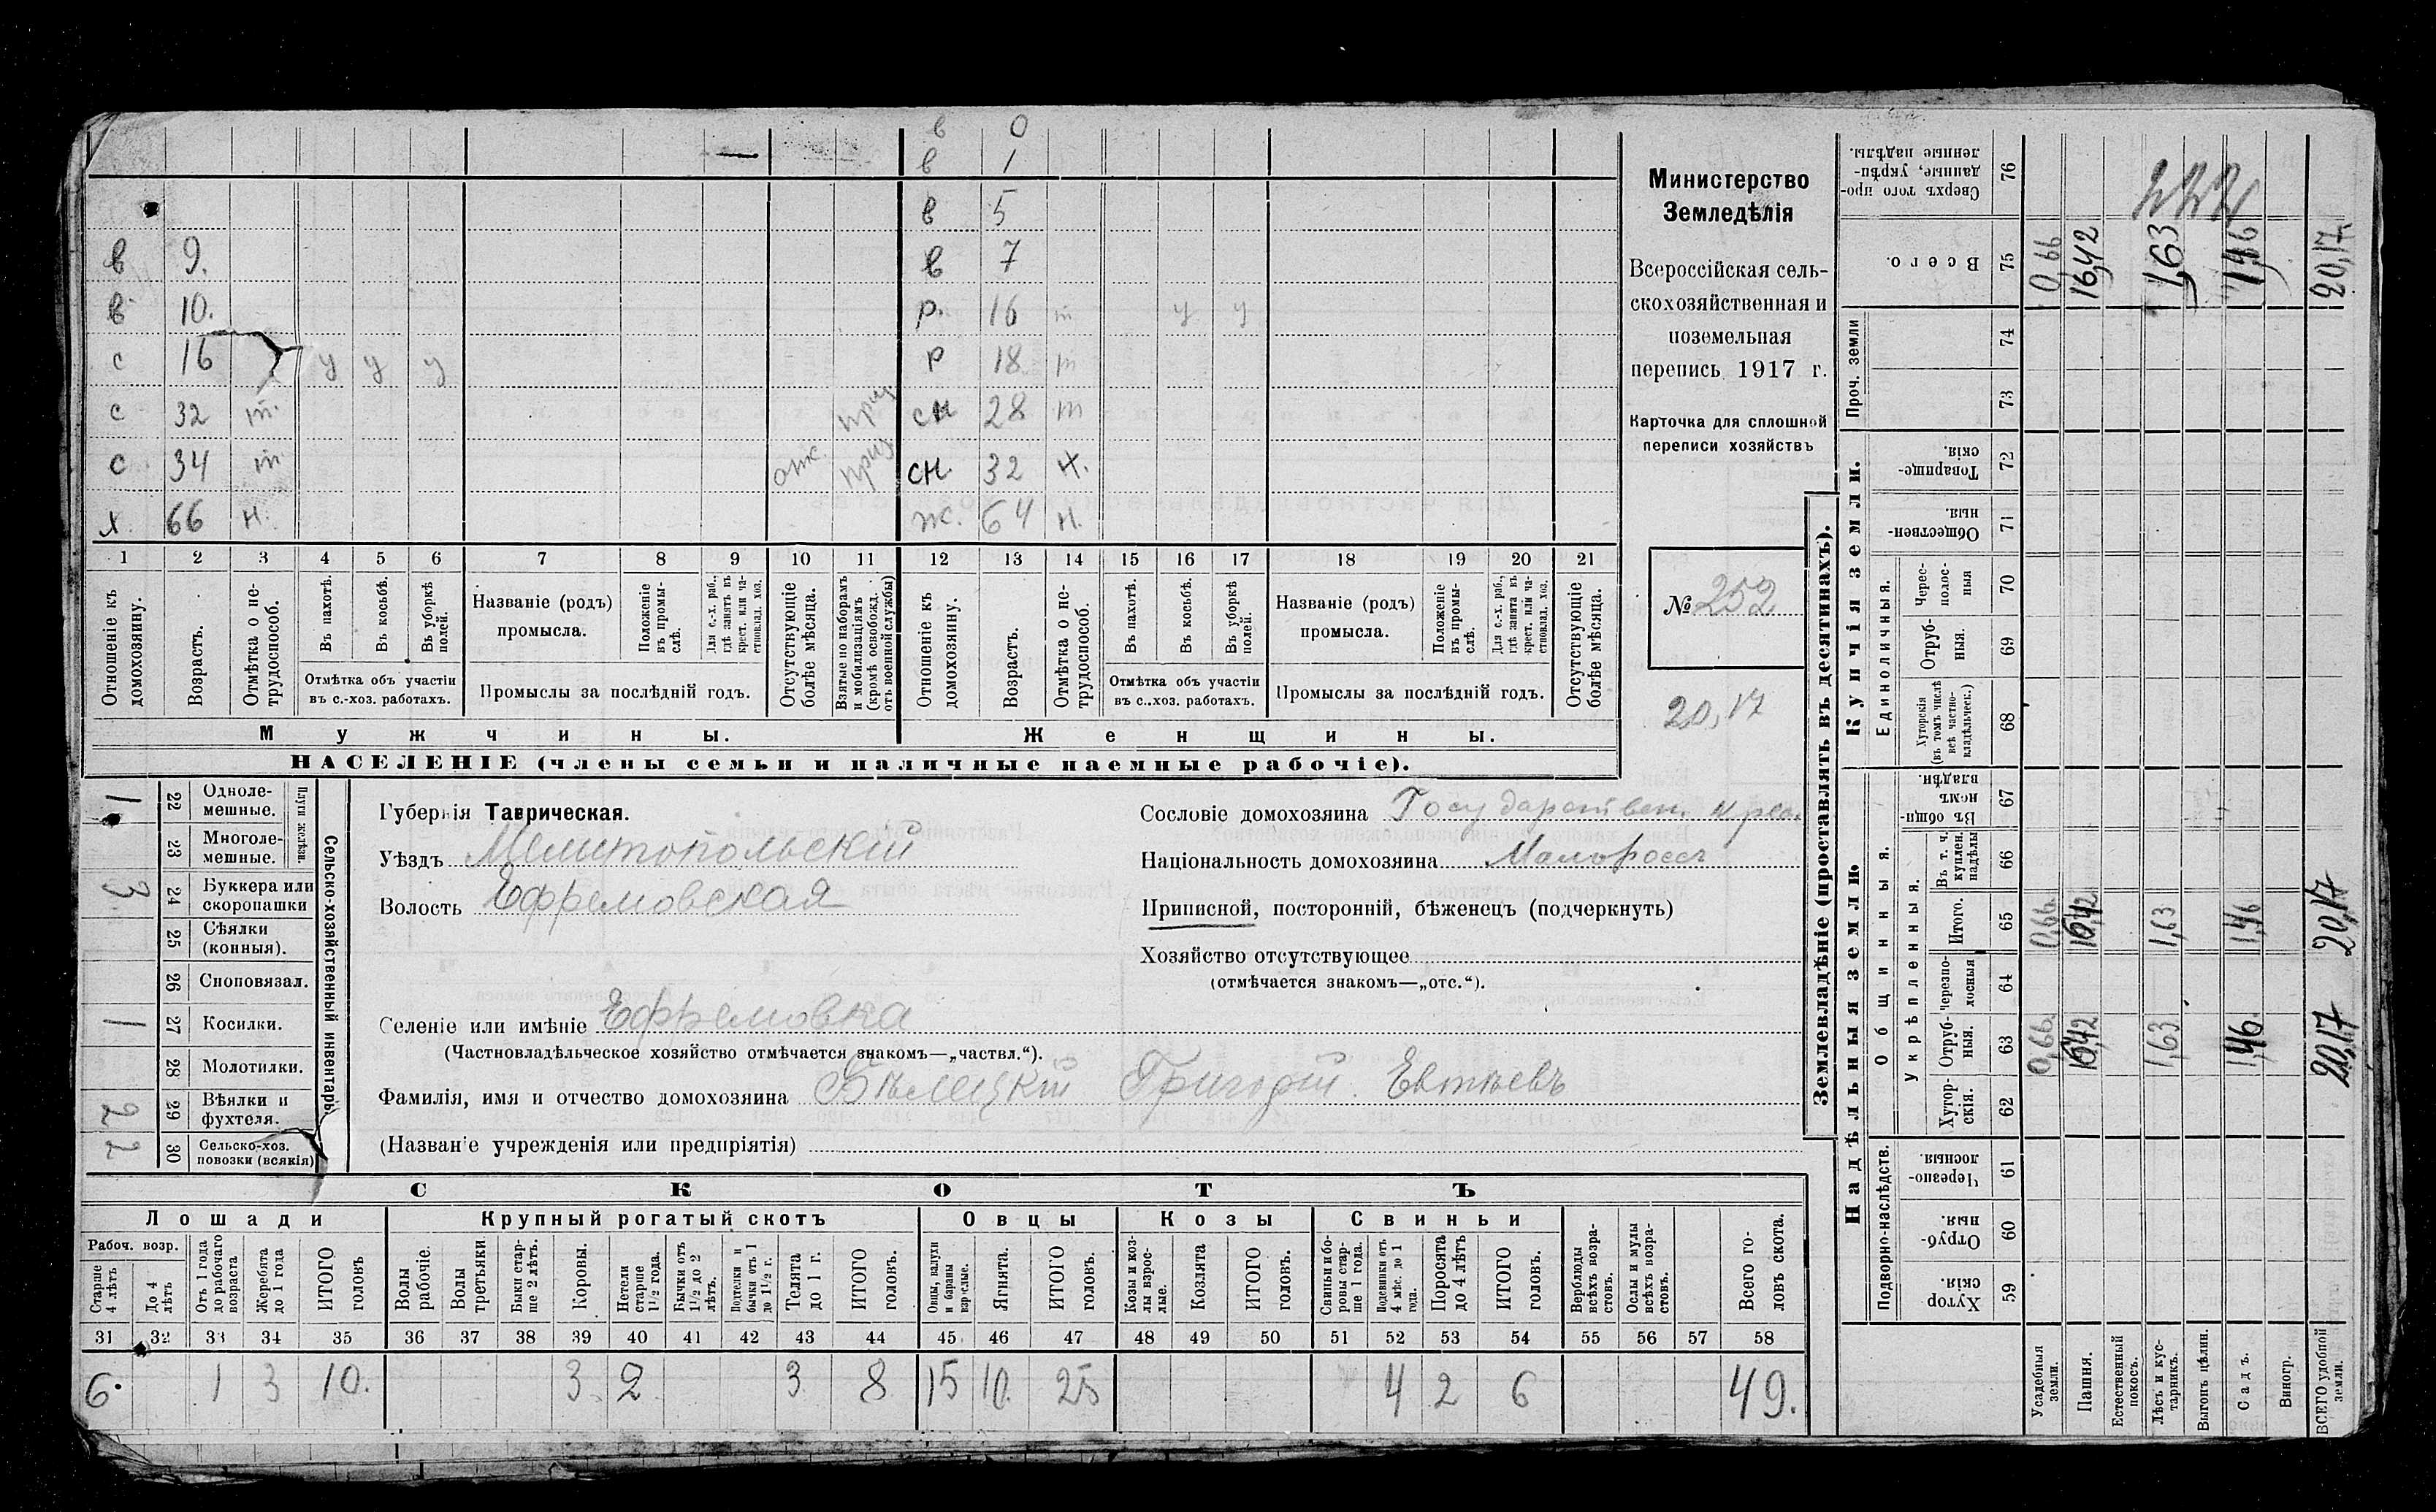 в 0
в 1
в 5
в 9. в 7
в 10. р. 16 т у у
с 16 у у у р 18 т
с 32 т. приз сн 28 т
с 34 т отс. приз сн. 32 н.
х. 66 н. ж. 64 н.
1 2 3 4 5 6 7 8 9 10 11 12 13 14 15 16 17 18 19 20 21
Отношеніе къ домохозяину.
Возрастъ.
Отмѣтка о не-трудоспособ.
Въ пахотѣ.
Въ косьбѣ.
Въ уборкѣ полей.
Отмѣтка объ участіи въ с.-хоз. работахъ.
Названіе (родъ) промысла.
Положеніе въ промы-слѣ.
Для с.-х. раб., гдѣ занятъ въ крест. или ча-стновлад. хоз.
Промыслы за послѣдній годъ.
Отсутствующіе болѣе мѣсяца.
Взятые по наборамъ и мобилизаціямъ (кромѣ освобожд. отъ военной службы)
Отношеніе къ домохозяину.
Возрастъ.
Отмѣтка о не-трудоспособ.
Въ пахотѣ.
Въ косьбѣ.
Въ уборкѣ полей.
Отмѣтка объ участіи въ с.-хоз. работахъ.
Названіе (родъ) промысла.
Положеніе въ промы-слѣ.
Для с.-х. раб., гдѣ занята въ крест. или ча-стновлад. хоз.
Промыслы за послѣдній годъ.
Отсутствующіе болѣе мѣсяца.
Мужчины. Женщины.
НАСЕЛЕНІЕ (члены семьи и наличные наемные рабочіе).
Министерство
Земледѣлія
Всероссійская сель-
скохозяйственная и
поземельная
перепись 1917 г.
Карточка для сплошной
переписи хозяйствъ
№ 252
20,17
Сельско-хозяйственный инвентарь.
Плуги желѣзн.
22 Одноле-мешные. 1
23 Многоле-мешные.
24 Буккера или скоропашки 3
25 Сѣялки (конныя).
26 Сноповязал.
27 Косилки. 1
28 Молотилки.
29 Вѣялки и фухтеля. 2
30 Сельско-хоз. повозки (всякія) 2
Губернія Таврическая.
Уѣздъ Мелитопольскій
Волость Ефремовская
Селеніе или имѣніе Ефремовка
(Частновладѣльческое хозяйство отмѣчается знакомъ—„частвл.“).
Фамилія, имя и отчество домохозяина Бѣлецкій Григорій Евтѣевъ
(Названіе учрежденія или предпріятія)
Сословіе домохозяина Государствен. крес.
Національность домохозяина Малороссъ
Приписной, посторонній, бѣженецъ (подчеркнуть)
Хозяйство отсутствующее
(отмѣчается знакомъ—„отс.“).
СКОТЪ
Лошади Крупный рогатый скотъ Овцы Козы Свиньи
Рабоч. возр.
Старше 4 лѣтъ
До 4 лѣтъ
Отъ 1 года до рабочаго возраста
Жеребята до 1 года
ИТОГО головъ
Волы рабочіе.
Волы третьяки
Быки стар-ше 2 лѣтъ.
Коровы.
Нетели старше 1½ года.
Бычки отъ 1½ до 2 лѣтъ.
Подтелки и бычки отъ 1 до 1½ г.
Телята до 1 г.
ИТОГО головъ.
Овцы, валухи и бараны взрослые.
Ягнята.
ИТОГО головъ.
Козы и коз-лы взрос-лые.
Козлята
ИТОГО головъ.
Свиньи и бо-ровы стар-ше 1 года.
Подсвинки отъ 4 мѣс. до 1 года.
Поросята до 4 лѣтъ
ИТОГО головъ.
Верблюды всѣхъ возра-стовъ.
Ослы и мулы всѣхъ возра-стовъ.
Всего го-ловъ скота.
31 32 33 34 35 36 37 38 39 40 41 42 43 44 45 46 47 48 49 50 51 52 53 54 55 56 57 58
6. 1 3 10. 3 2 3 8 15 10. 25 4 2 6 49.
Землевладѣніе (проставлять въ десятинахъ).
Надѣльныя земли
Купчія земли.
Подворно-наслѣдств.
Общинныя.
Укрѣпленныя.
Единоличныя.
Проч. земли
59 Хутор-скія.
60 Отруб-ныя.
61 Черезпо-лосныя.
62 Хутор-скія.
63 Отруб-ныя.
64 Черезпо-лосныя
65 Итого.
66 Въ т. ч. куплен. надѣлы
67 Въ общи-номъ владѣн.
68 Хуторскія (въ томъ числѣ всѣ частно-владѣльческ.)
69 Отруб-ныя.
70 Черес-полос-ныя
71 Обществен-ныя.
72 Товарище-скія.
73
74
75 Всего.
76 Сверхъ того про-данные, укрѣп-ленные надѣлы.
Усадебныя земли. 0,66 0,66 0,66
Пашня. 16,42 16,42 16,42
Естественный покосъ.
Лѣсъ и кус-тарникъ. 1,63 1,63 1,63
Выгонъ цѣлин.
Садъ. 1,46 1,46 1,46
Виногр.
ВСЕГО удобной земли. 20,17 20,17 20,17